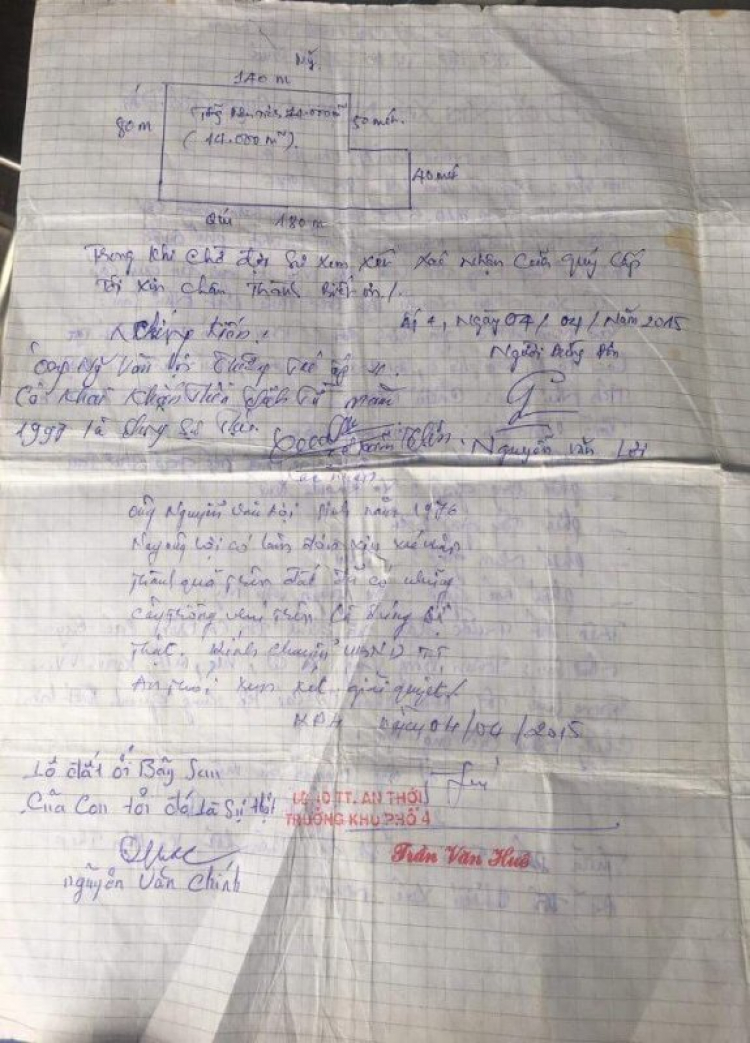 Mỹ
140 m
80 m
Tổng diện tích 14.000m²
(14.000 m²).
50 mét.
40 mét
Quí 180 m
Trong khi chờ đợi sự xem xét xác nhận của quý cấp
Tôi xin chân thành biết ơn/.
Ấp 4, Ngày 04/04/Năm 2015
Chứng kiến:
Người Đứng Đơn
Có khai khẩn
1997 là đúng sự thật
Nguyễn Văn Lợi
ông Nguyễn Văn Lợi sinh năm 1976
Nay ông Lợi có làm đơn xin xác nhận
thành quả trên đất đã có những
cây trồng như trên là đúng sự
thật. Kính chuyển UBND TT
An Thới xem xét giải quyết/
KP4 ngày 04/04/2015
Lô đất ở Bãy Sau
Của Con tôi đó là Sự thật
UBND TT. AN THỚI
TRƯỞNG KHU PHỐ 4
Trần Văn Huê
nguyễn Văn Chính